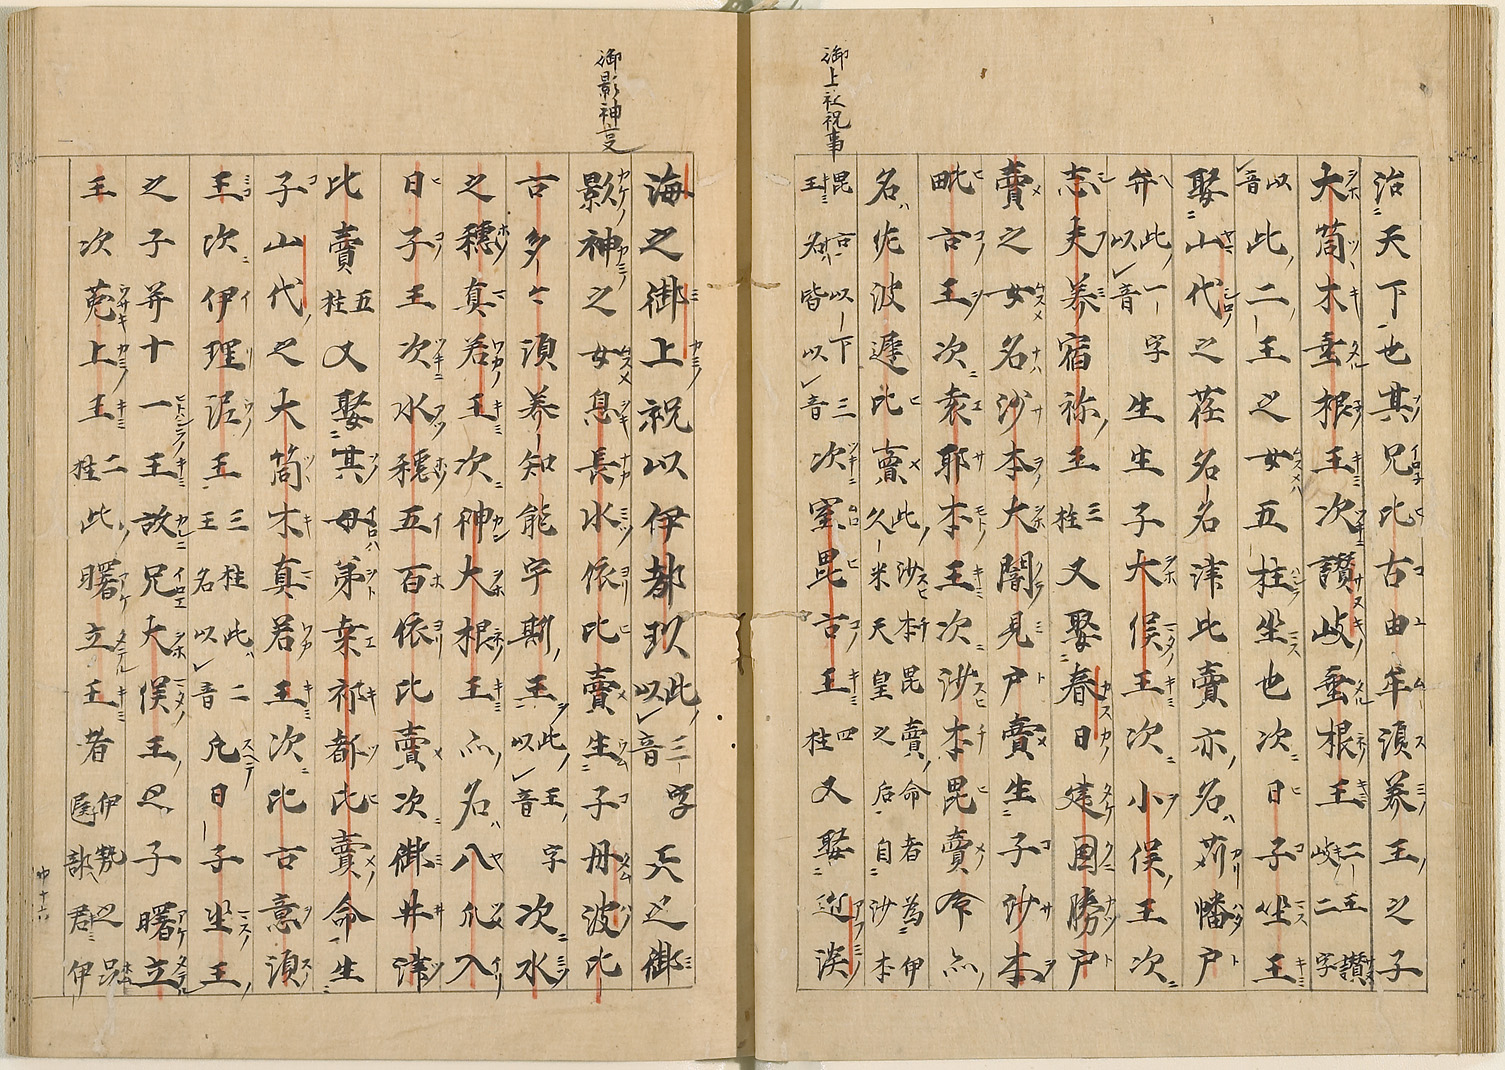 御上社祝事
治天下也其兄比古由牟須美王之子
大筒木垂根王次讃岐垂根王 二王 讃岐二字
以音 此二王之女五柱坐也次日子坐王
娶山代之荏名名津比賣亦名苅幡戸
弁 此一字以音 生生子大俣王次小俣王次
志夫美宿祢王 三柱 又娶春日建国勝戸
賣之女名沙本大闇見戸賣生子沙本
毗古王次袁耶本王次沙本毘賣命亦
名佐波遅比賣 此沙本毘賣命者為伊久米天皇之后自沙本
毘古以下三王名皆以音 次室毘古王 四柱 又娶近淡
御影神夏
海之御上祝以伊都玖 此三字以音 天之御
影神之女息長水依比賣生子丹波比
古多々須美知能宇斯王 此王字以音 次水
之穂真若王次神大根王亦名八爪入
日子王次水穂五百依比賣次御井津
比賣 五柱 又娶其母弟袁祁都比賣命生
子山代之大筒木真若王次比古意須
王次伊理泥王 三柱此二王名以音 凡日子坐王
之子并十一王故兄大俣王之子曙立
王次菟上王 二柱 此曙立王者 伊勢之品遅部君伊
中十六